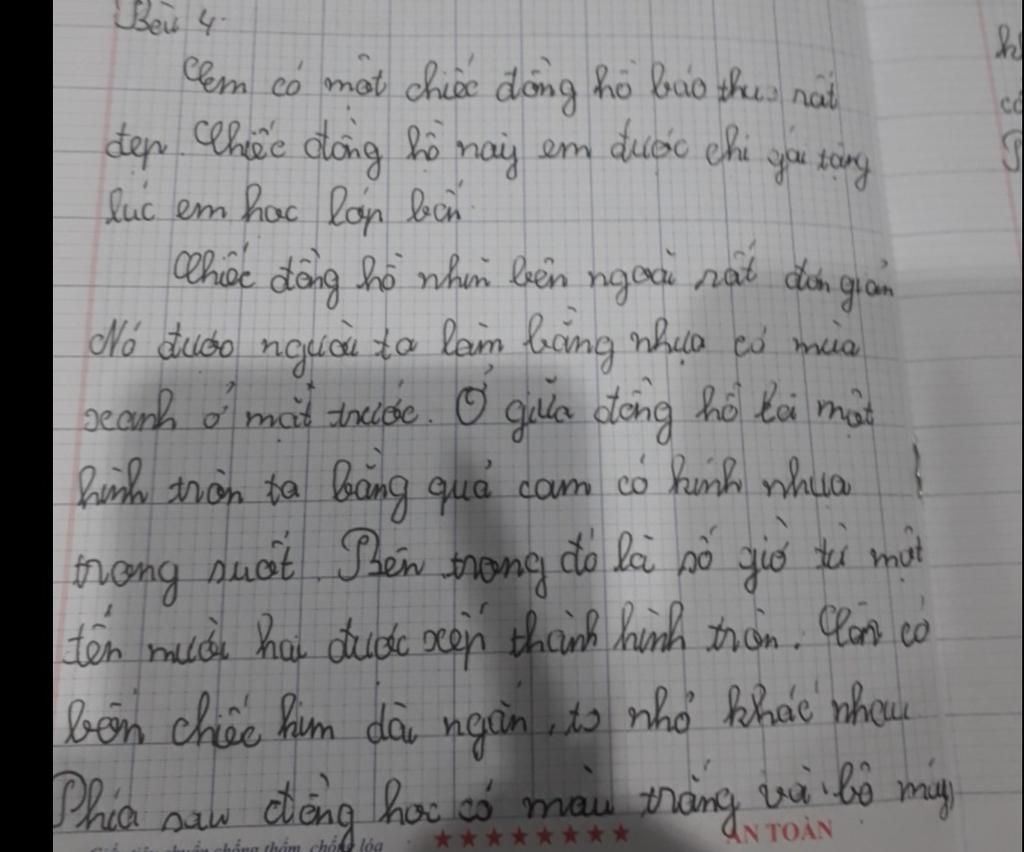 Bài 4.
Em có một chiếc đồng hồ báo thức rất
đẹp. Chiếc đồng hồ này em được chị gái tặng
lúc em học lớp bốn.
Chiếc đồng hồ nhìn bên ngoài rất đơn giản
Nó được người ta làm bằng nhựa có mùa
xeanh ở mặt trước. Ở giữa đồng hồ là một
hình tròn to bằng quả cam có kính nhựa
trong suốt. Bên trong đó là số giờ từ một
tến mười hai được xếp thành hình tròn. Còn có
bốn chiếc kim dài ngắn, to nhỏ khác nhau
Phía sau đồng học có màu trắng và bộ máy
AN TOÀN